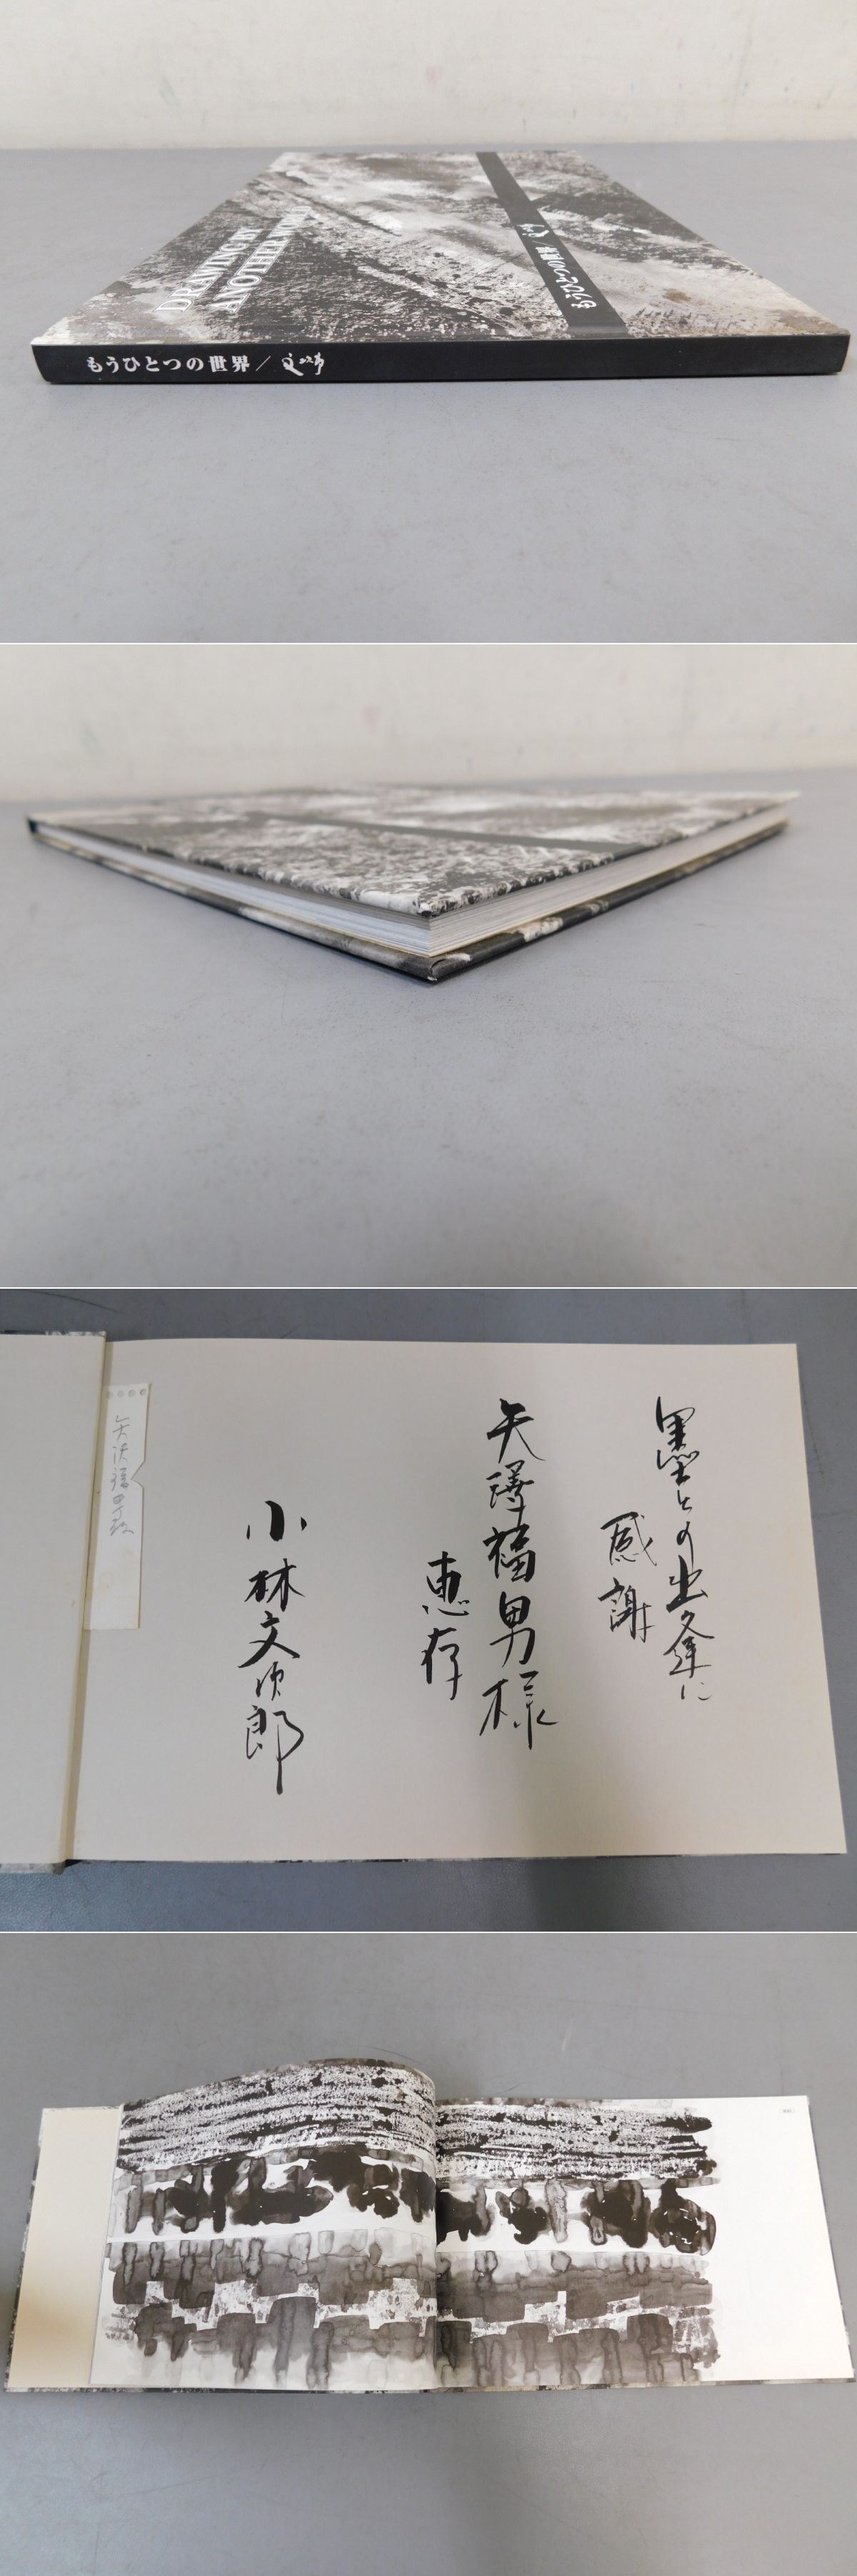 DRAWING BY
ANOTHER WORLD
もうひとつの世界／文次郎
もうひとつの世界／文次郎
墨との出逢に
感謝
矢澤福男様
恵存
小林文次郎
矢沢福男様